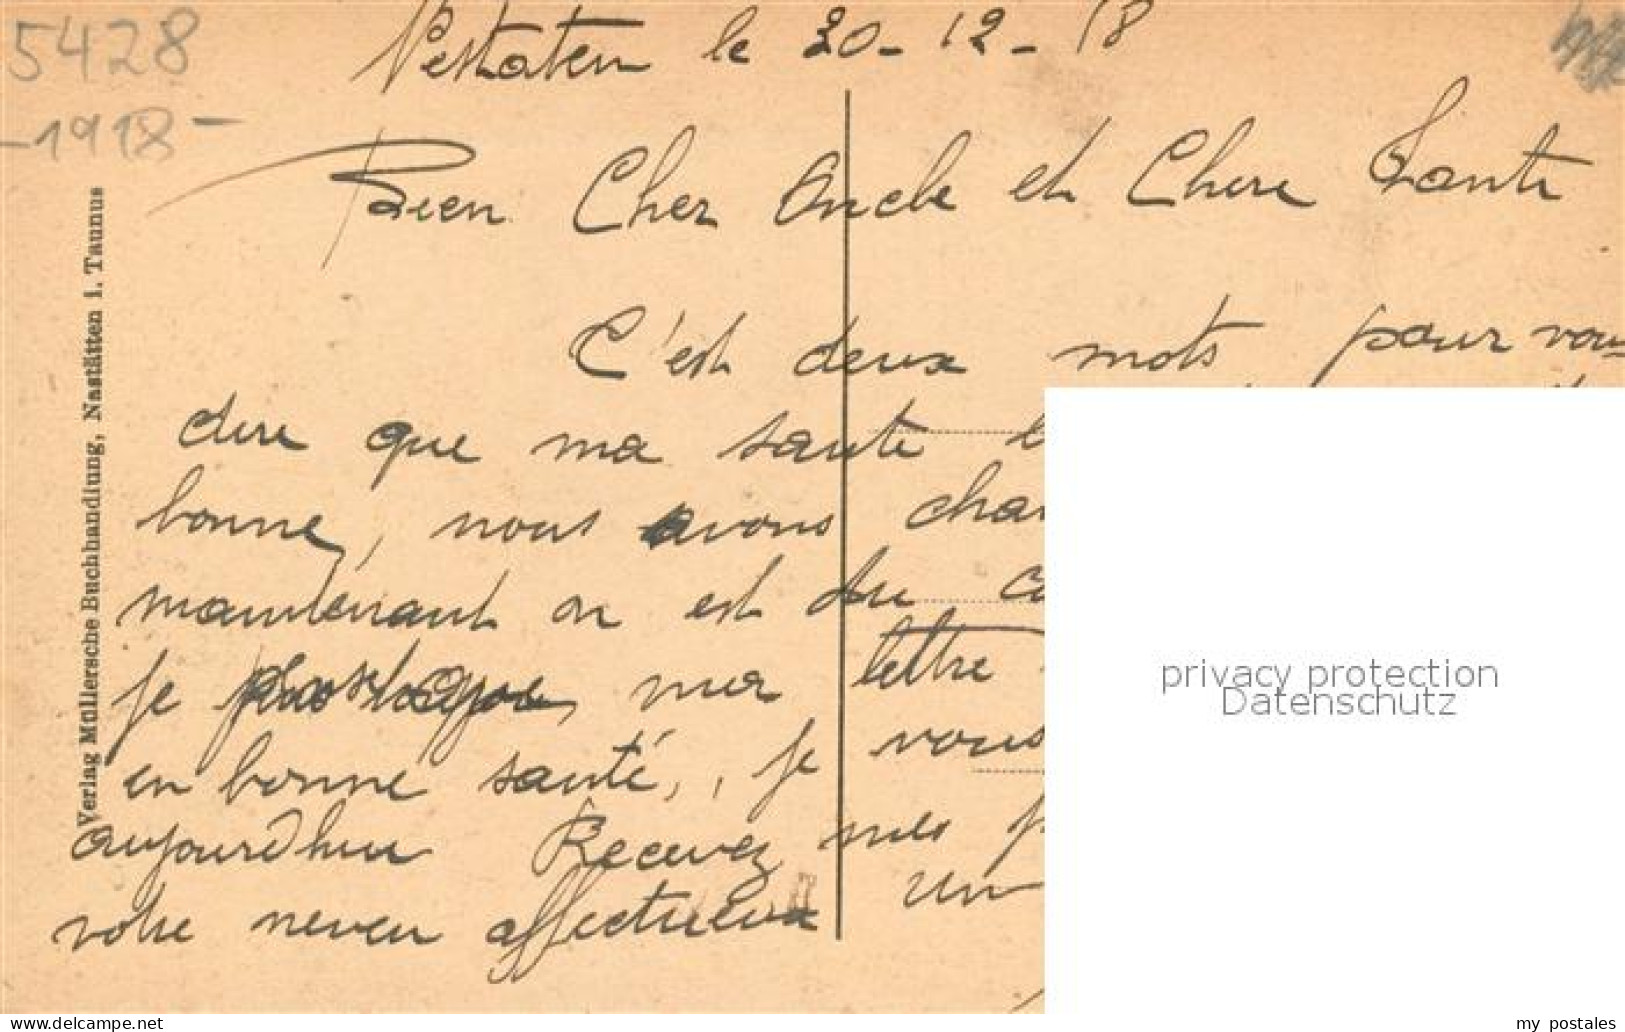 5428
-1918-
le 20-12-18
Bien Cher Oncle et Chere Tante
C'est deux mots pour vous
dire que ma sante
bonne, nous avons
maintenant on est du
je ma lettre
en bonne santé, je vous
aujourdhui Recevez mes
votre neveu affectueux un
Verlag Müllersche Buchhandlung, Nastätten i. Taunus
privacy protection
Datenschutz
www.delcampe.net
my_postales